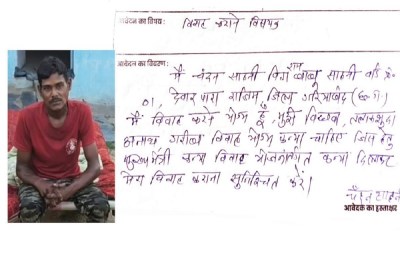 आवेदन का विषय: विवाह कराने विषयक
आवेदन का विवरण:
मैं चंदन साहनी पिता राम साहनी वार्ड क्र.
01, देवार पारा राजिम जिला गरियाबंद (छ.ग.)
मैं विवाह करने योग्य हूँ मुझे विधवा, तलाकशुदा
अनाथ गरीब विवाह योग्य कन्या चाहिए जिस हेतु
मुख्यमंत्री कन्या विवाह योजनांतर्गत कन्या दिलाकर
मेरा विवाह कराना सुनिश्चित करें।
चंदन साहनी
आवेदक का हस्ताक्षर